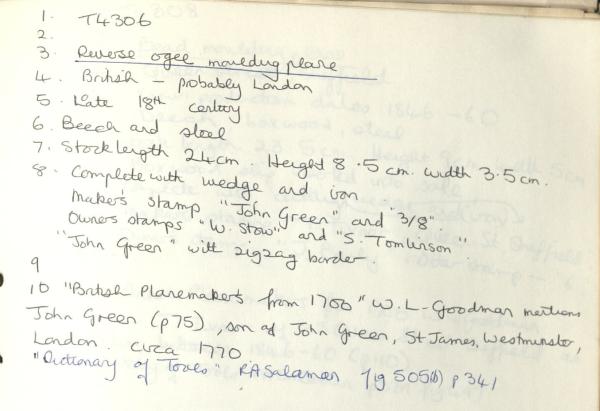 1. T4306
2.
3. Reverse ogee moulding plane
4. British - probably London
5. Late 18th century
6. Beech and steel
7. Stock length 24cm. Height 8.5cm. Width 3.5cm.
8. Complete with wedge and iron
Maker's stamp "John Green" and "3/8"
Owners stamps "W. Stow" and "S. Tomlinson"
"John Green" with zigzag border.
9
10 "British Planemakers from 1700" W.L-Goodman mentions
John Green (p75), son of John Green, St James, Westminster,
London. circa 1770
"Dictionary of Tools" RA Salaman fig 505(b) p 341